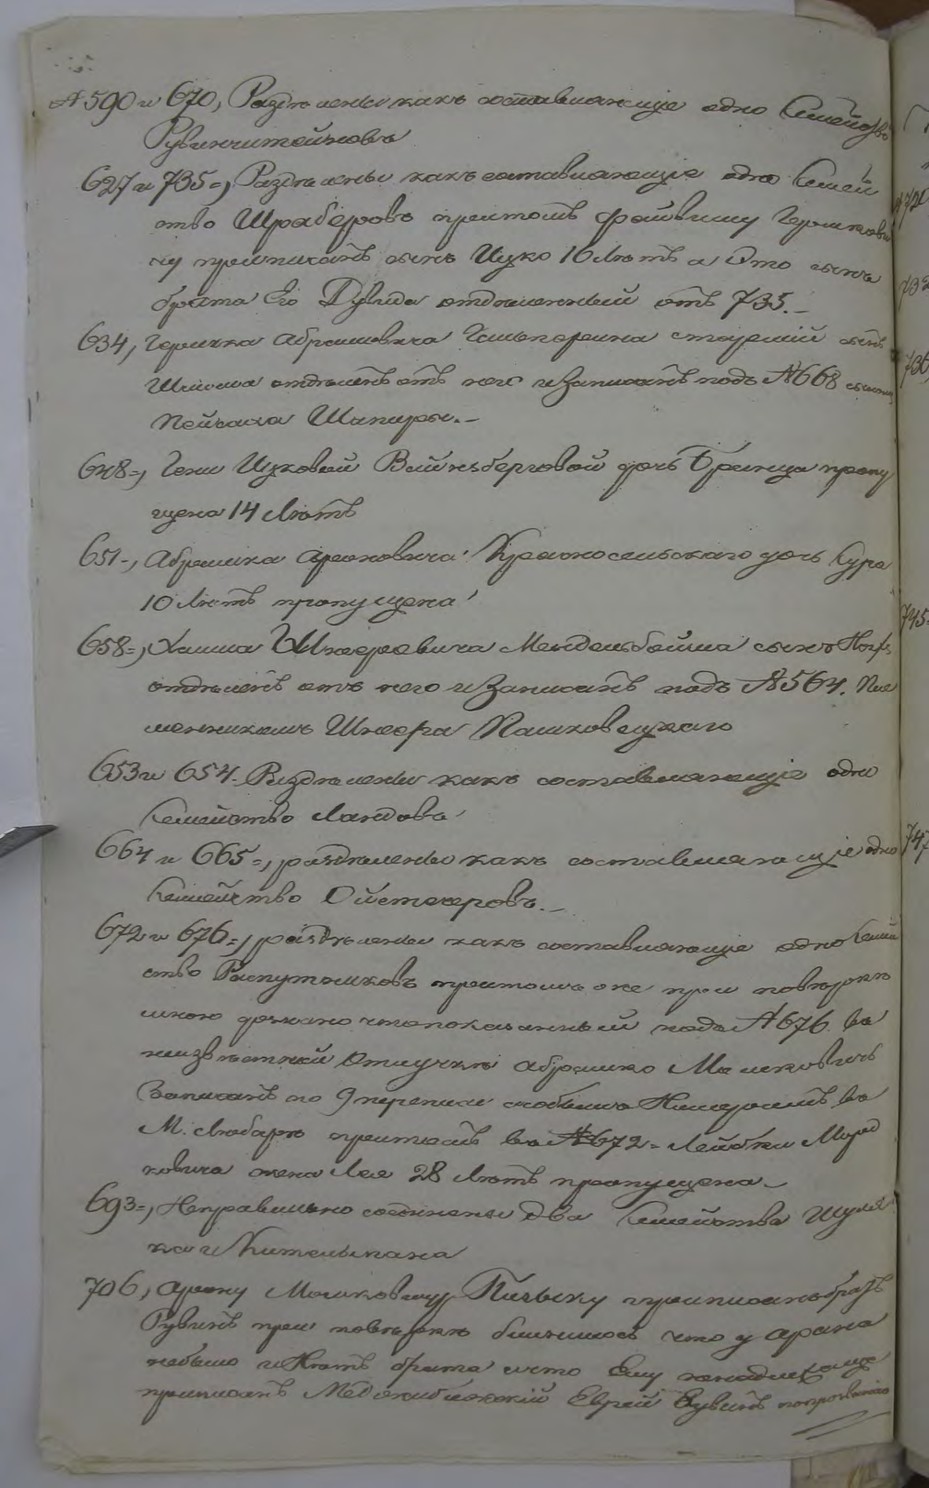 № 590 и 670, Раздѣлены какъ составляющіе одно Семейство
Рувинштейновъ
627 и 735=, Раздѣлены какъ составляющіе одно Семей
ство Шраберовъ притомъ Файвишу Гершкови
чу приписанъ сынъ Ицко 10 лѣтъ а Это сынъ
брата Его Дувида отдѣленный отъ 735.-
634, Гершка Абрамовича старшій сынъ
Шлиома отдѣленъ отъ него и Записанъ подъ № 668 сыномъ
Пейсаха Шапиры.-
648=, Гени Ицковой Вайнсберговой дочь Бринца пропу
щена 14 лѣтъ
651-, Абрамка Ароновича Красносельскаго дочь Сура
10 лѣтъ пропущена
658=, Хаима Шнееровича Мендельбойма сынъ
отдѣленъ отъ него и Записанъ подъ № 564. Пле
менникомъ Шнеера Пашковецкаго
653 и 654. Раздѣлены какъ составляющіе одно
Семейство Ландова
664 и 665=, раздѣлены какъ составляющіе одно
Семейство Ойстечеровъ.-
672 и 676=, раздѣлены какъ составляющіе одно Семей
ство Распутниковъ притомъ же при повѣркѣ
мною дознано что показанный подъ № 676 въ
неизвѣстной Отлучкѣ Абрамко Мошковичъ
Записанъ по 9 переписи особымъ въ
М. Любарѣ притомъ въ № 672= Лейбки Морд
ковича жена Лея 28 лѣтъ пропущена -
693=, Неправильно соединены Два Семейства Шуля
ка и Кительмана
706, Арону Мошковичу Пильску приписанъ братъ
Рувинъ при повѣркѣ объяснилось что у Арона
небыло и Нѣтъ брата а что Ему
приписанъ Меджибожскій Еврей Рувинъ